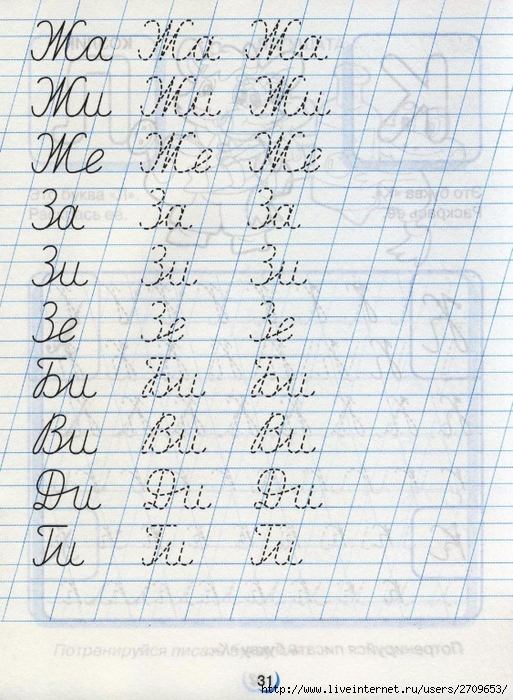 Жа Жа Жа
Жи Жи Жи
Же Же Же
За За За
Зи Зи Зи
Зе Зе Зе
Би Би Би
Ви Ви Ви
Ди Ди Ди
Ги Ги Ги
31
http://www.liveinternet.ru/users/2709653/